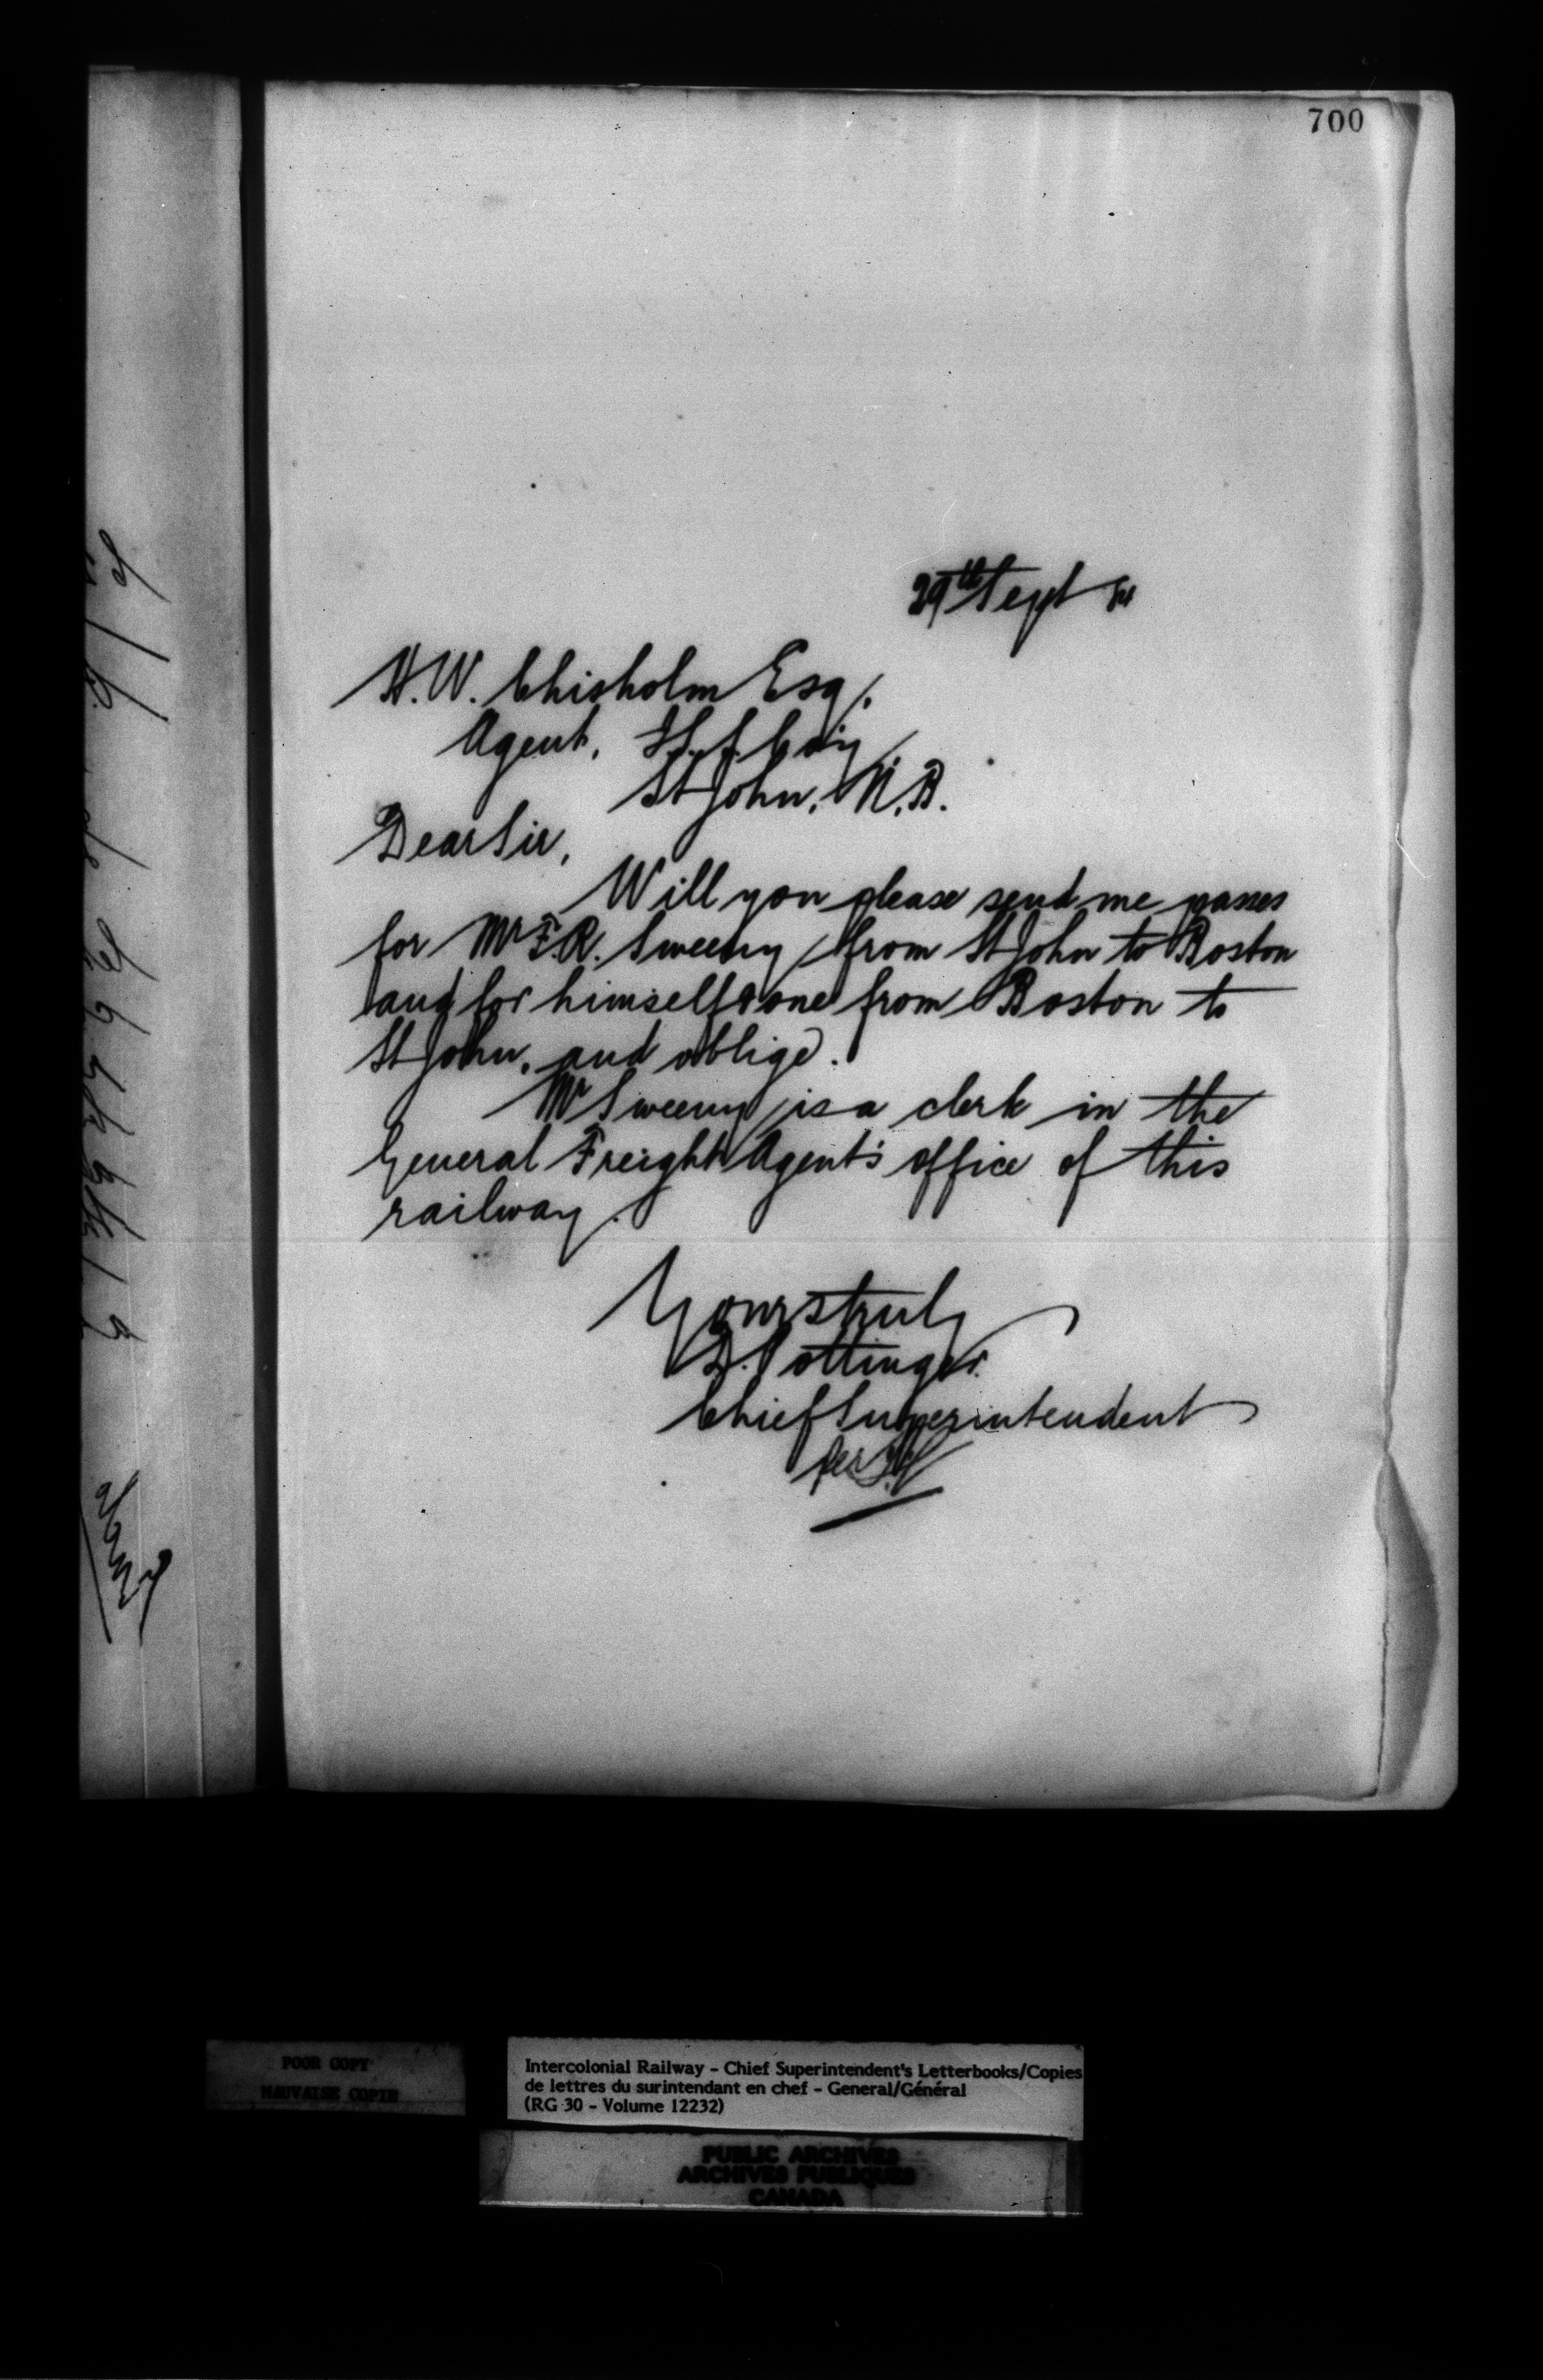 700
29th Sept 84
H. W. Chisholm Esq,
Agent, S. S. Coy
St John, N. B.
Dear Sir,
Will you please send me passes
for Mr F. R. Sweeny from St John to Boston
and for himself & one from Boston to
St John, and oblige.
Mr Sweeny is a clerk in the
General Freight Agent's office of this
railway.
Yours truly
D. Pottinger
Chief Superintendent
Per
POOR COPY
MAUVAISE COPIE
Intercolonial Railway - Chief Superintendent's Letterbooks/Copies
de lettres du surintendant en chef - General/Général
(RG 30 - Volume 12232)
PUBLIC ARCHIVES
ARCHIVES PUBLIQUES
CANADA